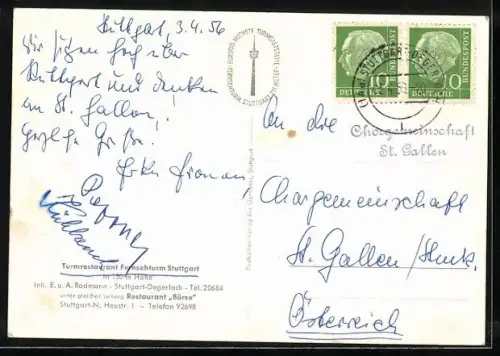 Stuttgart, 3.4.56
Wir sitzen hoch über
Stuttgart und denken
an St. Gallen!
Herzliche Grüße!
Turmrestaurant Fernsehturm Stuttgart
in 150 m Höhe
Inh. E. u. A. Radmann - Stuttgart-Degerloch - Tel. 20684
unter gleicher Leitung Restaurant „Börse"
Stuttgart-N, Heustr. 1 - Telefon 92698
EUROPAS HÖCHSTE TURMGASTSTÄTTE
FERNSEHTURM STUTTGART
10 10
DEUTSCHE BUNDESPOST
DEUTSCHE BUNDESPOST
STUTTGART-DEGERLOCH
An die
Chorgemeinschaft
St. Gallen
Chorgemeinschaft
St. Gallen
Österreich